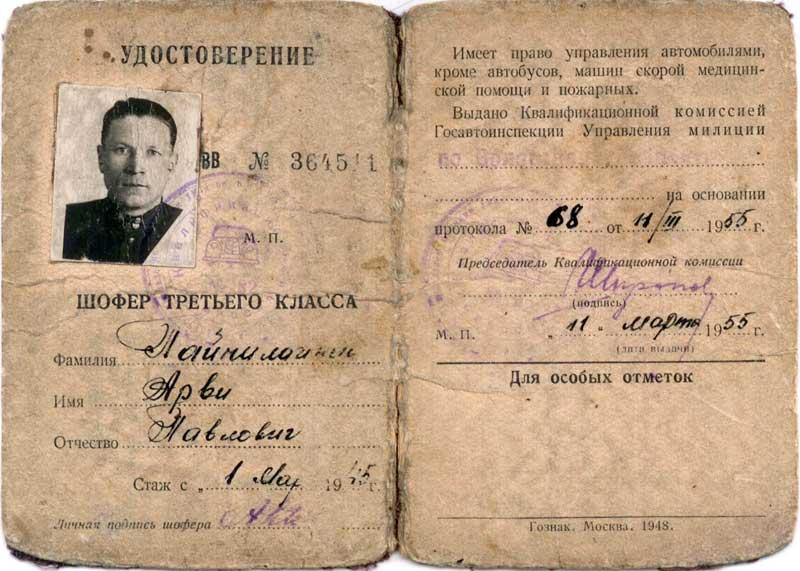 УДОСТОВЕРЕНИЕ
ВВ № 364511
М. П.
ШОФЕР ТРЕТЬЕГО КЛАССА
Фамилия
Имя Арви
Отчество Павлович
Стаж с „ 1 Мая 1945 г.
Личная подпись шофера
Имеет право управления автомобилями,
кроме автобусов, машин скорой медицин-
ской помощи и пожарных.
Выдано Квалификационной комиссией
Госавтоинспекции Управления милиции
по
на основании
протокола № 68 от 11/III 1955 г.
Председатель Квалификационной комиссии
(подпись)
М. П. „ 11 “ марта 1955 г.
(дата выдачи)
Для особых отметок
Гознак. Москва. 1948.